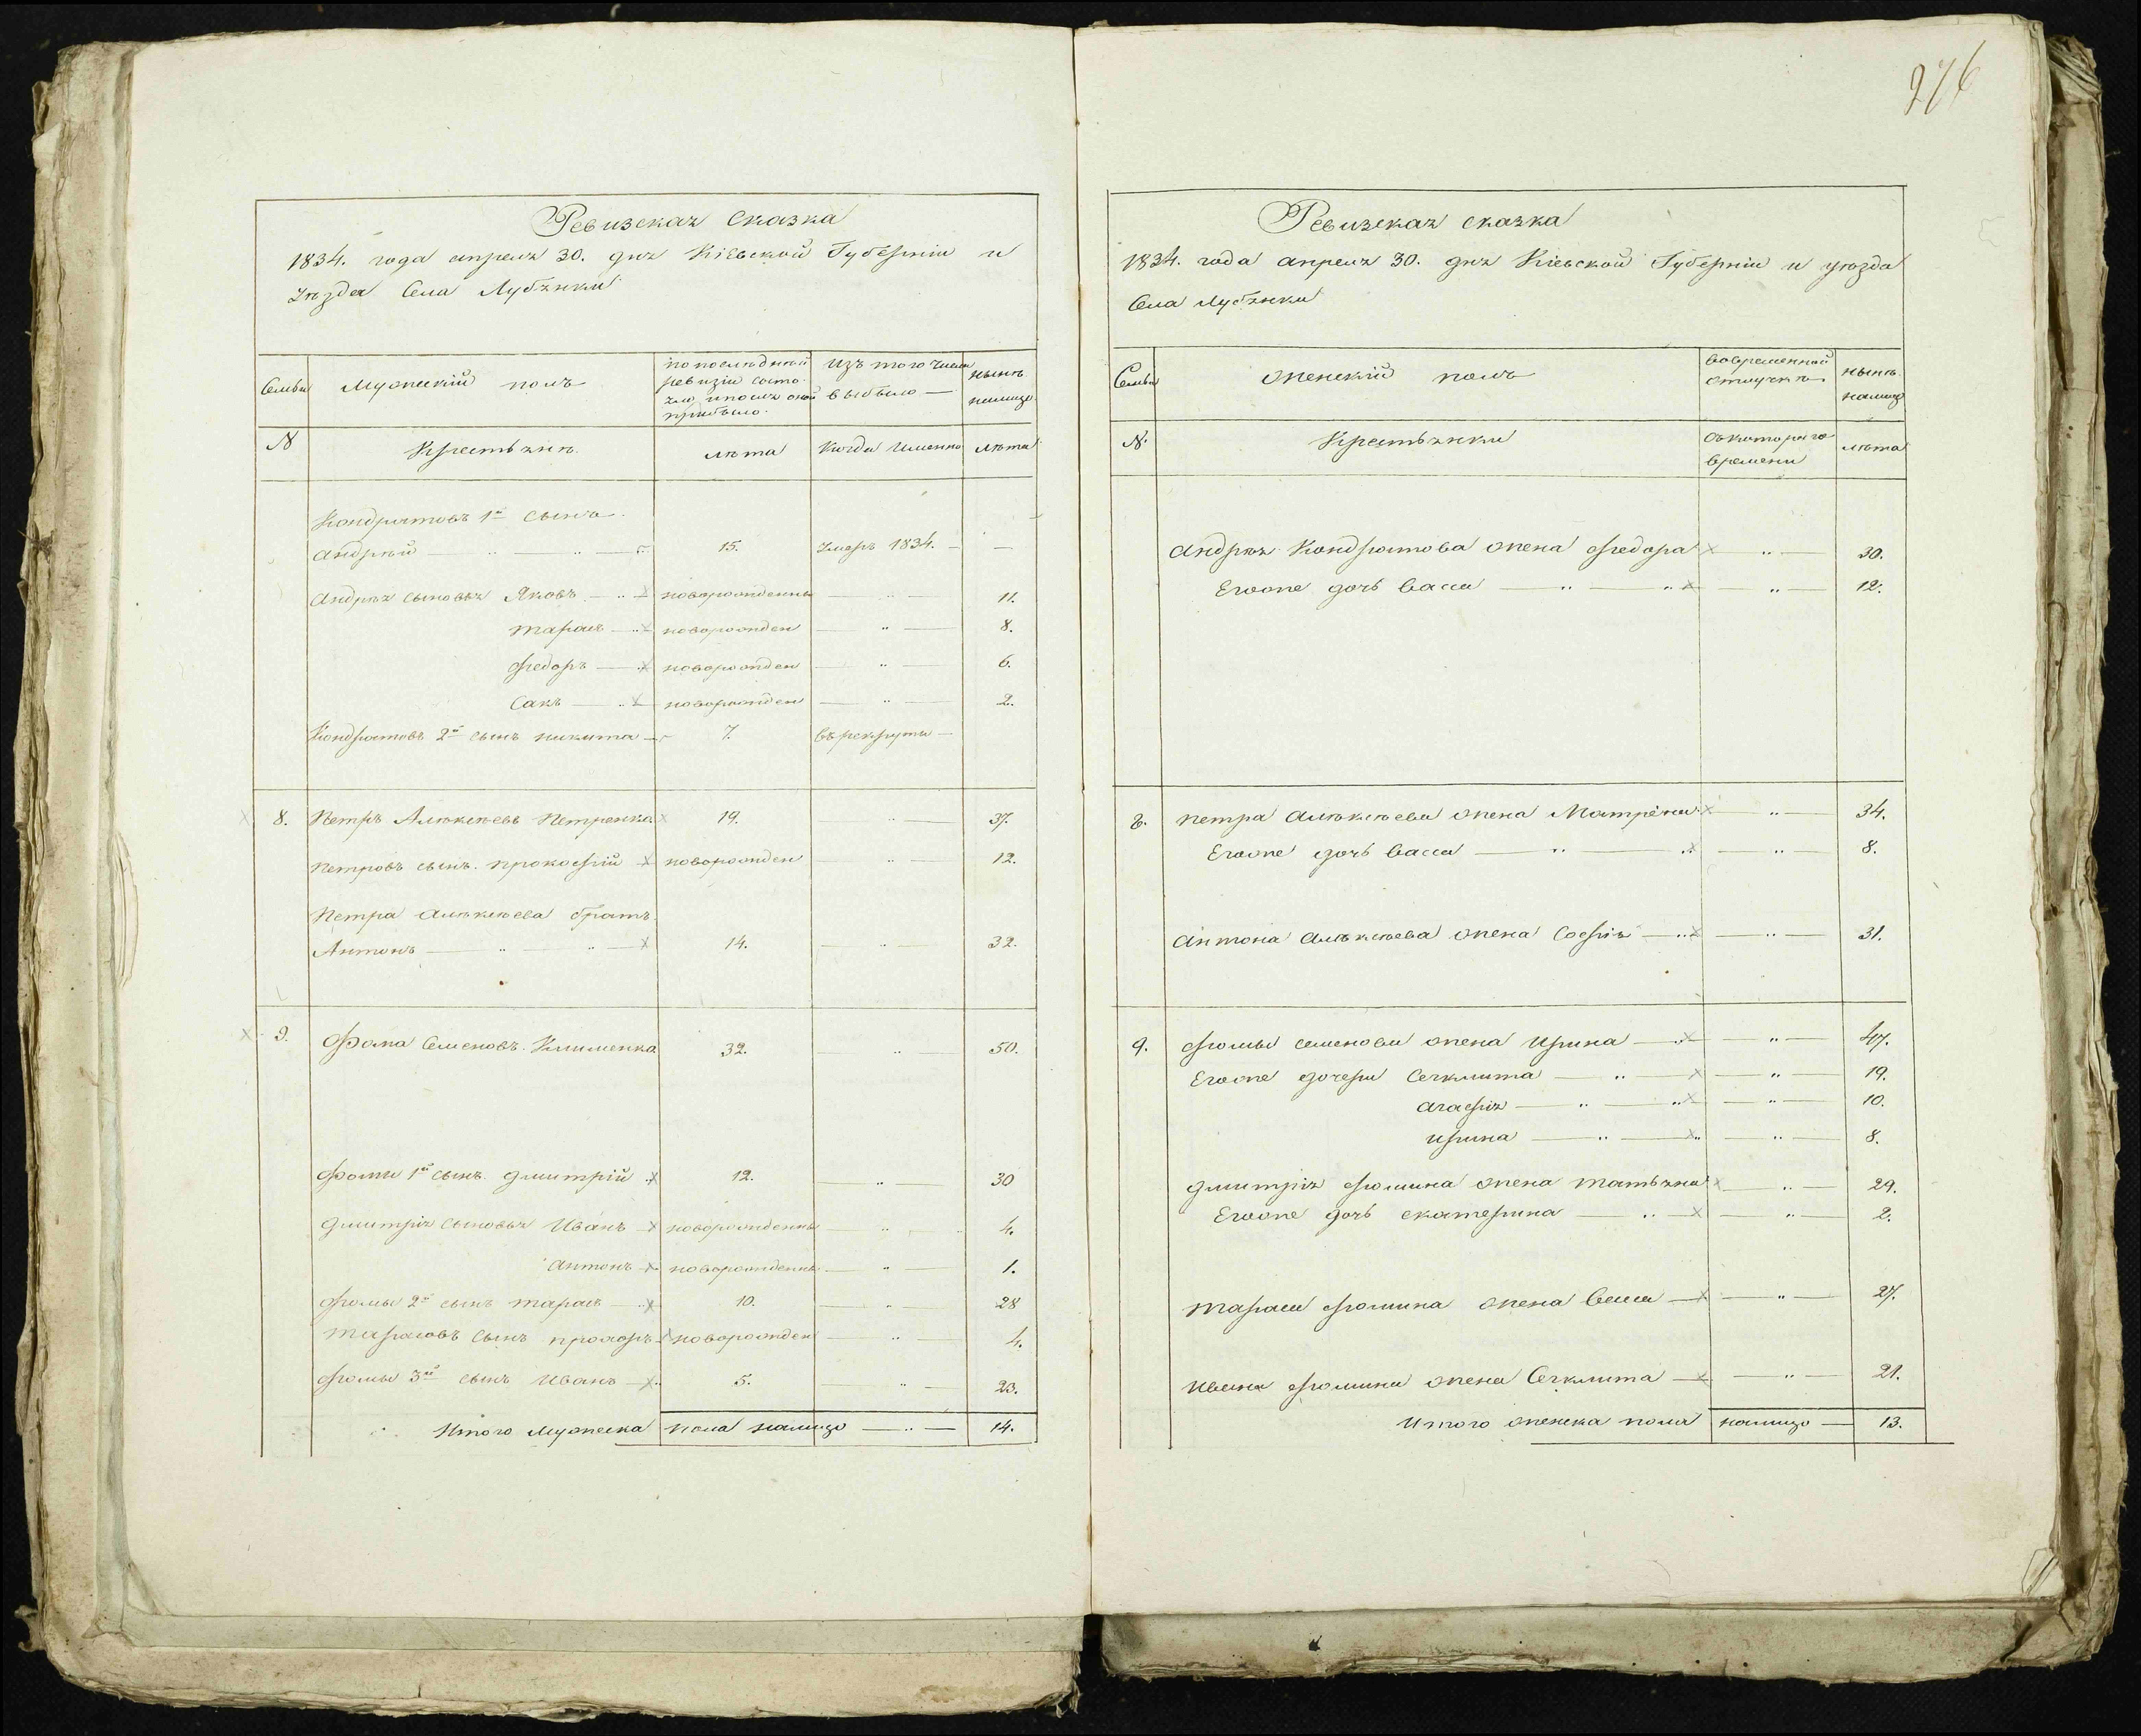 276
Ревизская сказка
1834. года апреля 30. дня Кіевской Губерніи и
уѣзда Села Лубянки
Семьи Мужеский полъ по последней ревизіи состояло и после оной прибыло. Изъ того числа выбыло — нынѣ налицо
N Крестьянѣ. лѣта Когда именно лѣта
Кондратовъ 1й сынъ
андрей 15. умеръ 1834. —
андрея сыновья Яковъ новорожденны 11.
тарасъ новорожден 8.
федоръ новорожден 6.
Сакъ новорожден 2.
Кондратовъ 2й сынъ никита 7. въ рекруты —
8. Петръ Алѣксѣевъ Петренко 19. 37.
Петровъ сынъ. прокофій новорожден 12.
Петра алѣксѣева братъ
Антонъ 14. 32.
9. Фома Семеновъ. Клименко 32. 50.
Фомы 1й сынъ дмитрій 12. 30
дмитрія сыновья Иванъ новорожденны 4.
антонъ новорожденны 1.
фомы 2й сынъ тарасъ 10. 28
тарасовъ сынъ прохоръ новорожден 4.
фомы 3й сынъ Иванъ 5. 23.
Итого мужеска пола налицо 14.
Ревизская сказка
1834. года апреля 30. дня Кіевской Губерніи и уѣзда
Села Лубянки
Семьи женский полъ во временной отлучкѣ нынѣ налицо
N. Крестьянки съ котораго времени лѣта
андрея Кондратова жена федора 30.
Егоже дочь васса 12.
8. петра алѣксѣева жена Матрёна 34.
Егоже дочь васса 8.
антона алѣксѣева жена Софія 31.
9. фомы семенова жена Ирина 47.
Егоже дочери Секлита 19.
агафія 10.
ирина 8.
дмитрія фомина жена татьяна 29.
Егоже дочь екатерина 2.
тараса фомина жена 27.
Ивана фомина жена Секлита 21.
Итого женска пола налицо — 13.